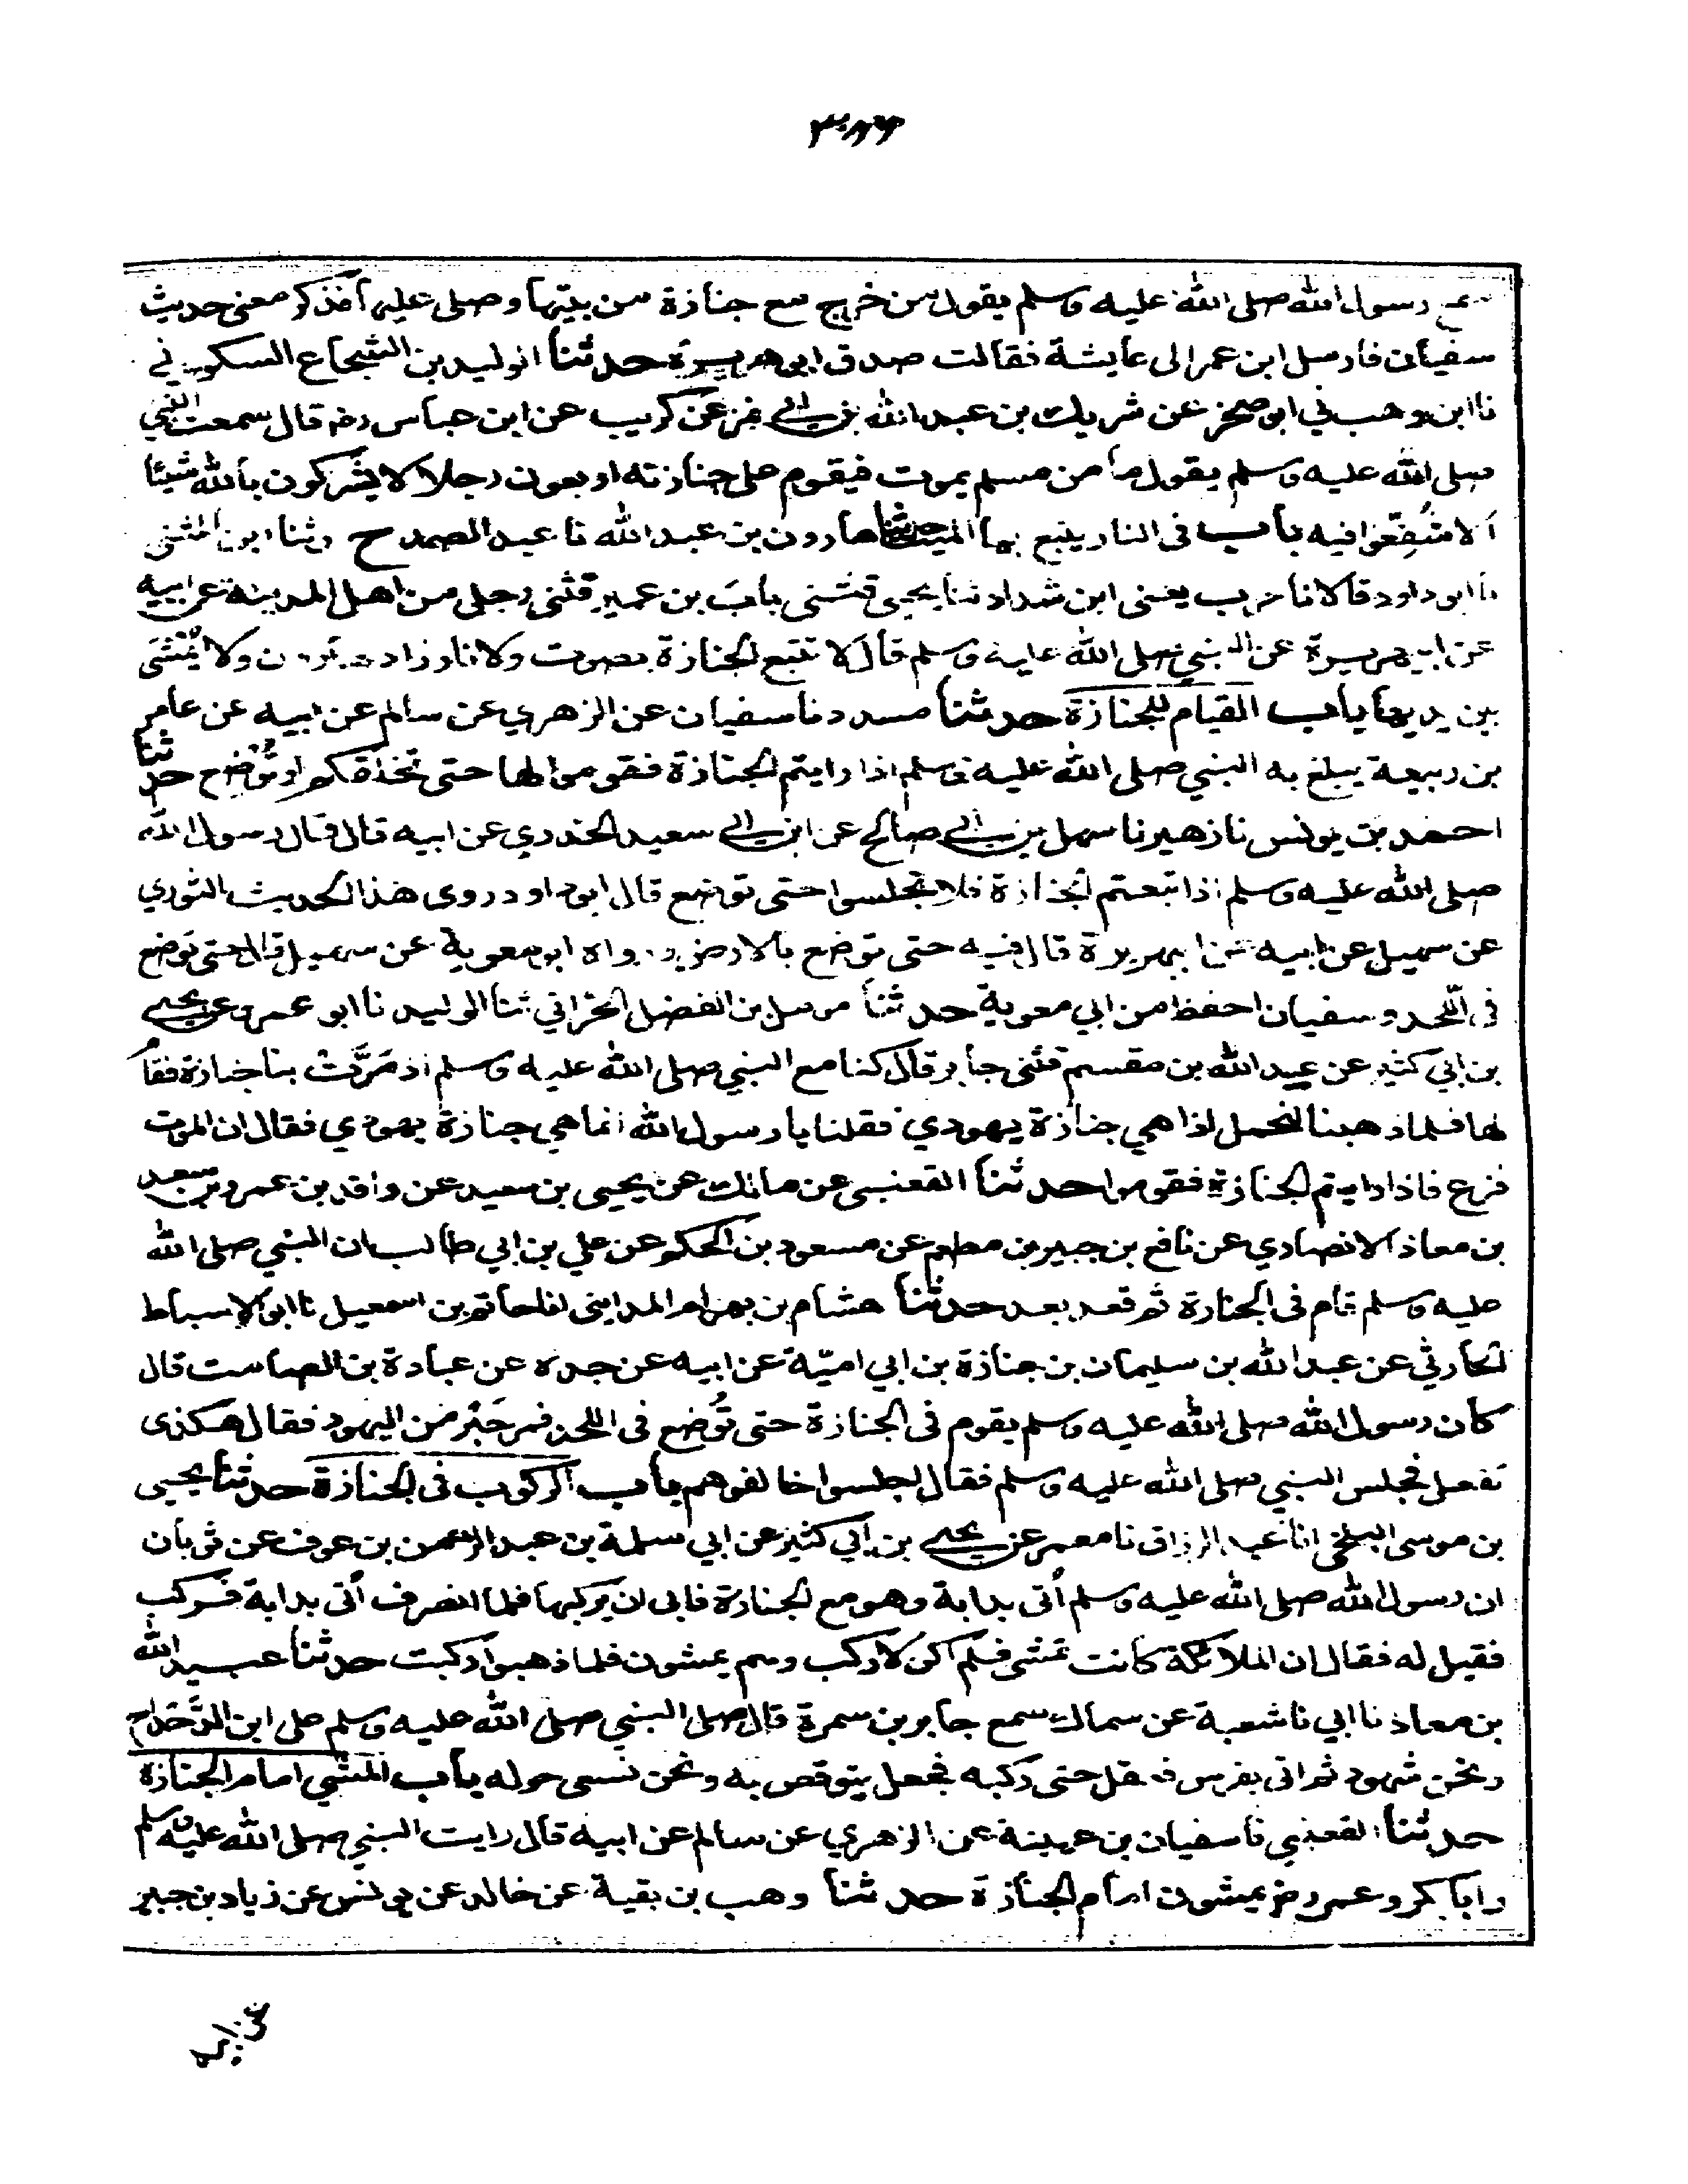 سمع رسول الله صلى الله عليه وسلم يقول من خرج مع جنازة من بيتها وصلى عليها فذكر معنى حديث
سفيان فارسل ابن عمر الى عايشة فقالت صدق ابو هريرة حدثنا الوليد بن الشجاع السكوني
نا ابن وهب ني ابو صخر عن شريك بن عبد الله بن ابي نمر عن كريب عن ابن عباس رضه قال سمعت النبي
صلى الله عليه وسلم يقول ما من مسلم يموت فيقوم على جنازته اربعون رجلا لا يشركون بالله شيئا
الا شُفِّعوا فيه باب فى النار يتبع بها الميت حدثنا هارون بن عبد الله نا عبد الصمد ح وثنا ابن المثنى
نا ابو داود قالا نا حرب يعنى ابن شداد ثنا يحيى قثنى باب بن عمير قثنى رجل من اهل المدينة عن ابيه
عن ابي هريرة عن النبي صلى الله عليه وسلم قال لا تتبع الجنازة بصوت ولا نار زاد هرون ولا يُمْشَى
بين يديها باب القيام للجنازة حدثنا مسدد نا سفيان عن الزهري عن سالم عن ابيه عن عامر
بن ربيعة يبلغ به النبي صلى الله عليه وسلم اذا رايتم الجنازة فقوموا لها حتى تخلفكم او تُوضع حدثنا
احمد بن يونس نا زهير نا سهل بن ابي صالح عن ابن ابي سعيد الخدري عن ابيه قال قال رسول الله
صلى الله عليه وسلم اذا تبعتم الجنازة فلا تجلسوا حتى توضع قال ابو داود روى هذا الحديث الثوري
عن سهيل عن ابيه عن ابي هريرة قال فيه حتى توضع بالارض ورواه ابو معوية عن سهيل قال حتى توضع
فى اللّحد وسفيان احفظ من ابي معوية حدثنا مومل بن الفضل الحرّاني ثنا الوليد نا ابو عمرو عن يحيى
بن ابي كثير عن عبيد الله بن مقسم قثنى جابر قال كنا مع النبي صلى الله عليه وسلم اذ مَرَّت بنا جنازة فقام
لها فلما ذهبنا لنحمل اذا هي جنازة يهودي فقلنا يا رسول الله انما هي جنازة يهودي فقال ان الموت
فزع فاذا رايتم الجنازة فقوموا حدثنا القعنبى عن مالك عن يحيى بن سعيد عن واقد بن عمرو بن سعد
بن معاذ الانصاري عن نافع بن جبير بن مطعم عن مسعود بن الحكم عن علي بن ابي طالب ان النبي صلى الله
عليه وسلم قام فى الجنازة ثم قعد بعد حدثنا هشام بن بهرام المدايني انا حاتم بن اسمعيل نا ابو الاسباط
الحارثي عن عبد الله بن سليمان بن جنازة بن ابي اميّة عن ابيه عن جده عن عبادة بن الصامت قال
كان رسول الله صلى الله عليه وسلم يقوم فى الجنازة حتى تُوضع فى اللحد فمر حَبْر من اليهود فقال هكذى
نفعل فجلس النبي صلى الله عليه وسلم فقال اجلسوا خالفوهم باب الركوب فى الجنازة حدثنا يحيى
بن موسى البلخى انا عبد الرزاق نا معمر عن يحيى بن ابي كثير عن ابي سلمة بن عبد الرحمن بن عوف عن ثوبان
ان رسول الله صلى الله عليه وسلم اُتى بدابة وهو مع الجنازة فابى ان يركبها فلما انصرف اُتى بدابة فركب
فقيل له فقال ان الملائكة كانت تمشى فلم اكن لاركب وهم يمشون فلما ذهبوا ركبت حدثنا عبيد الله
بن معاذ نا ابي نا شعبة عن سماك سمع جابر بن سمرة قال صلى النبي صلى الله عليه وسلم على ابن الدَّحْدَاح
ونحن شهود ثم اتى بفرس فعقل حتى ركبه فجعل يتوقص به ونحن نسعى حوله باب المشي امام الجنازة
حدثنا القعنبي نا سفيان بن عيينة عن الزهري عن سالم عن ابيه قال رايت النبي صلى الله عليه وسلم
وابا بكر وعمر رضـ يمشون امام الجنازة حدثنا وهب بن بقية عن خالد عن يونس عن زياد بن جبير